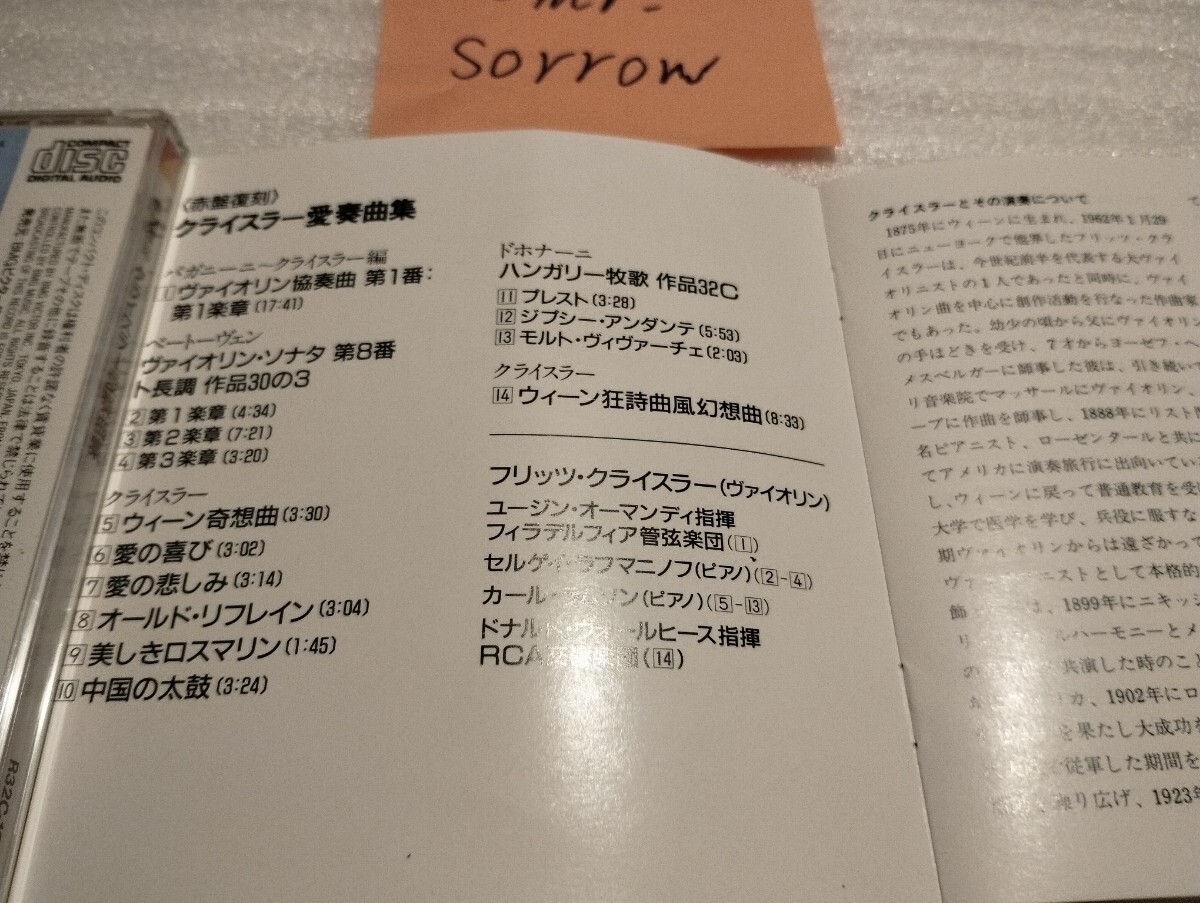 Sorrow
COMPACT
disc
DIGITAL AUDIO
〈赤盤復刻〉
クライスラー愛奏曲集
パガニーニ〜クライスラー編
1 ヴァイオリン協奏曲 第1番:
第1楽章(17:41)
ベートーヴェン
ヴァイオリン・ソナタ 第8番
ト長調 作品30の3
2 第1楽章(4:34)
3 第2楽章(7:21)
4 第3楽章(3:20)
クライスラー
5 ウィーン奇想曲(3:30)
6 愛の喜び(3:02)
7 愛の悲しみ(3:14)
8 オールド・リフレイン(3:04)
9 美しきロスマリン(1:45)
10 中国の太鼓(3:24)
ドホナーニ
ハンガリー牧歌 作品32C
11 プレスト(3:28)
12 ジプシー・アンダンテ(5:53)
13 モルト・ヴィヴァーチェ(2:03)
クライスラー
14 ウィーン狂詩曲風幻想曲(8:33)
フリッツ・クライスラー(ヴァイオリン)
ユージン・オーマンディ指揮
フィラデルフィア管弦楽団(1)
セルゲイ・ラフマニノフ(ピアノ)(2-4)
カール・ラムソン(ピアノ)(5-13)
ドナルド・ヴォールヒース指揮
RCA (14)
クライスラーとその演奏について
1875年にウィーンに生まれ、1962年1月29
日にニューヨークで他界したフリッツ・クラ
イスラーは、今世紀前半を代表する大ヴァイ
オリニストの1人であったと同時に、ヴァイ
オリン曲を中心に創作活動を行なった作曲家
でもあった。幼少の頃から父にヴァイオリン
の手ほどきを受け、7才からヨーゼフ・ヘ
メスベルガーに師事した彼は、引き続いて
リ音楽院でマッサールにヴァイオリン、
ーブに作曲を師事し、1888年にリスト門
名ピアニスト、ローゼンタールと共に
てアメリカに演奏旅行に出向いてい
し、ウィーンに戻って普通教育を受け
大学で医学を学び、兵役に服すな
期ヴァイオリンからは遠ざかって
ヴァ ニストとして本格的
飾 は、1899年にニキッシ
リ ルハーモニーとメ
の 共演した時のこと
カ、1902年にロ
を果たし大成功を
従軍した期間を
り広げ、1923年